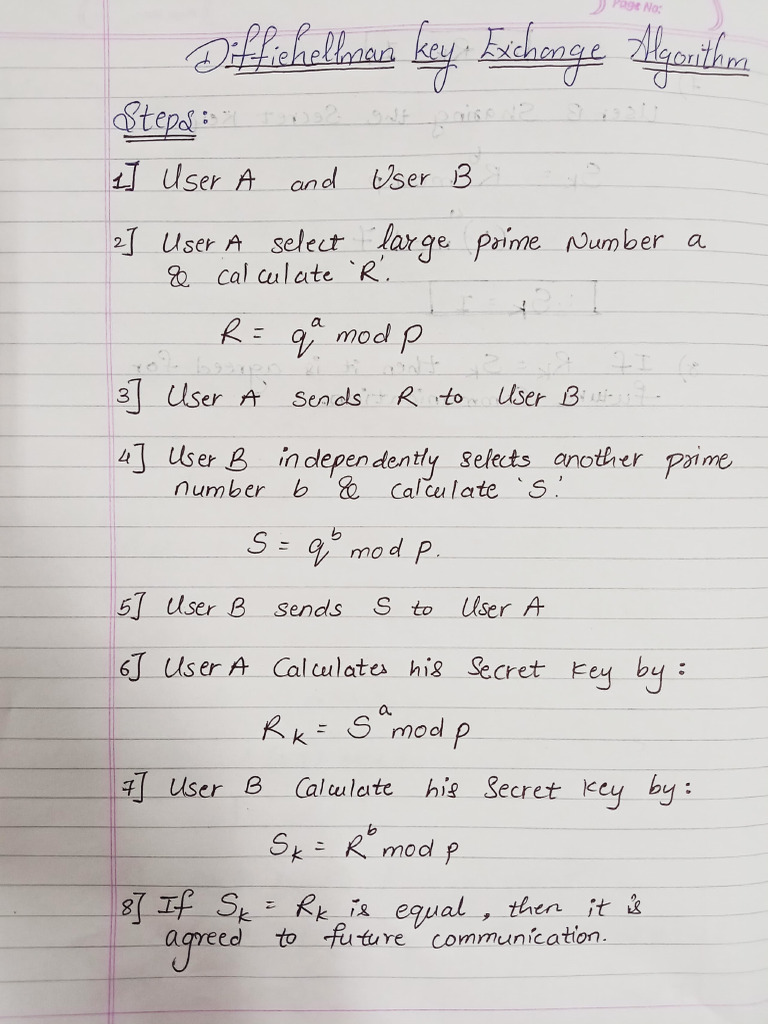 Page No:
Diffiehellman key Exchange Algorithm
Steps:
1] User A and User B
2] User A select large prime Number a
& calculate 'R'.
R = q^a mod p
3] User A sends R to User B
4] User B independently selects another prime
number b & calculate 'S'.
S = q^b mod p.
5] User B sends S to User A
6] User A Calculates his Secret key by:
R_k = S^a mod p
7] User B Calculate his Secret key by:
S_k = R^b mod p
8] If S_k = R_k is equal, then it is
agreed to future communication.